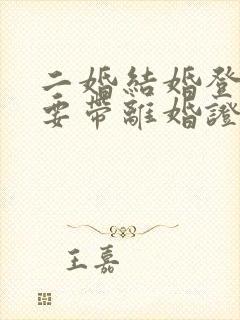 二婚結婚登
要帶離婚證
王嘉